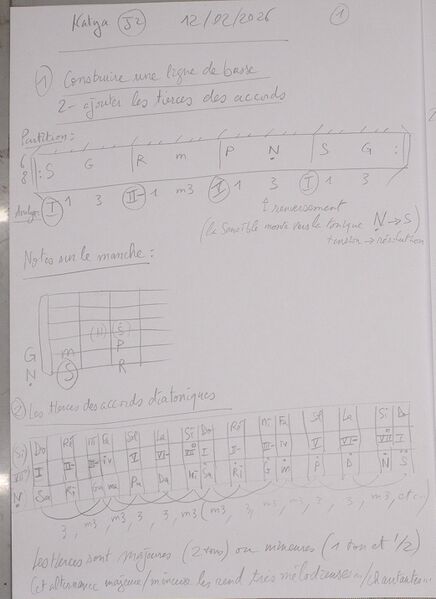 Katya 12/02/2026 1
1 Construire une ligne de basse
2- ajouter les tierces des accords
Partition:
6 8 S G R m P N S G
Analyse I 1 3 II- 1 m3 1 3 I 1 3
↑ renversement
(la Sensible monte vers la tonique N → S)
tension → résolution
Notes sur le manche:
(N) (S)
P
G m
N S R
2 Les tierces des accords diatoniques
Si Do Ré Mi Fa Sol La Si Do Ré Mi Fa Sol La Si Do
VII I II- III- IV V VI- VII I II- III- IV V VI- VII I
N Sa Ri Ga ma Pa Da Ni Sa Ri G m P D N S
3, m3, m3, 3, 3, m3, m3, 3, m3, m3, 3, 3, m3, etc
Les tierces sont majeures (2 tons) ou mineures (1 ton et 1/2)
(cet alternance majeur/mineur les rend très mélodieuses/chantantes...